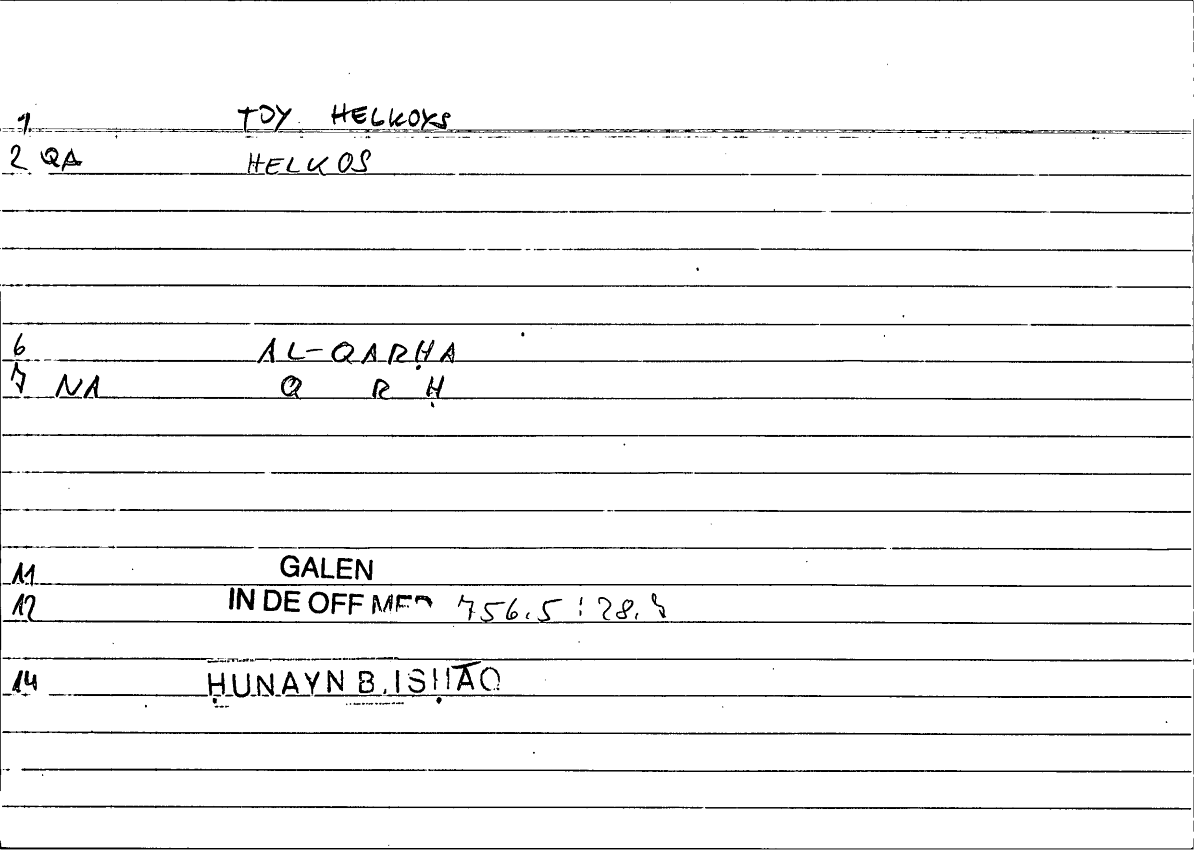 1. TOY HELKOYS
2 QA HELKOS
6 AL-QARḤA
7 NA Q R Ḥ
11 GALEN
12 IN DE OFF MED 756.5 : 28.7
14 ḤUNAYN B. ISḤĀQ